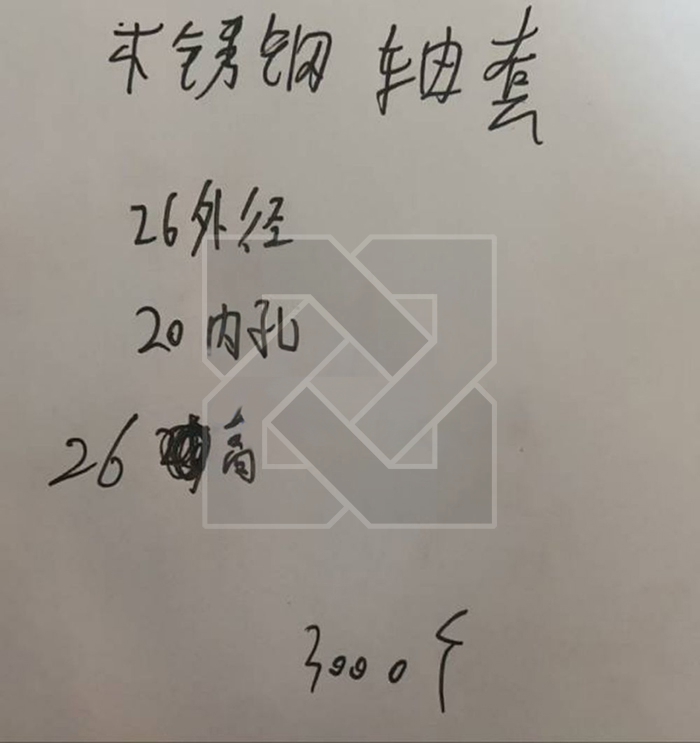 不锈钢 轴套
26外径
20内孔
26 高
3000个